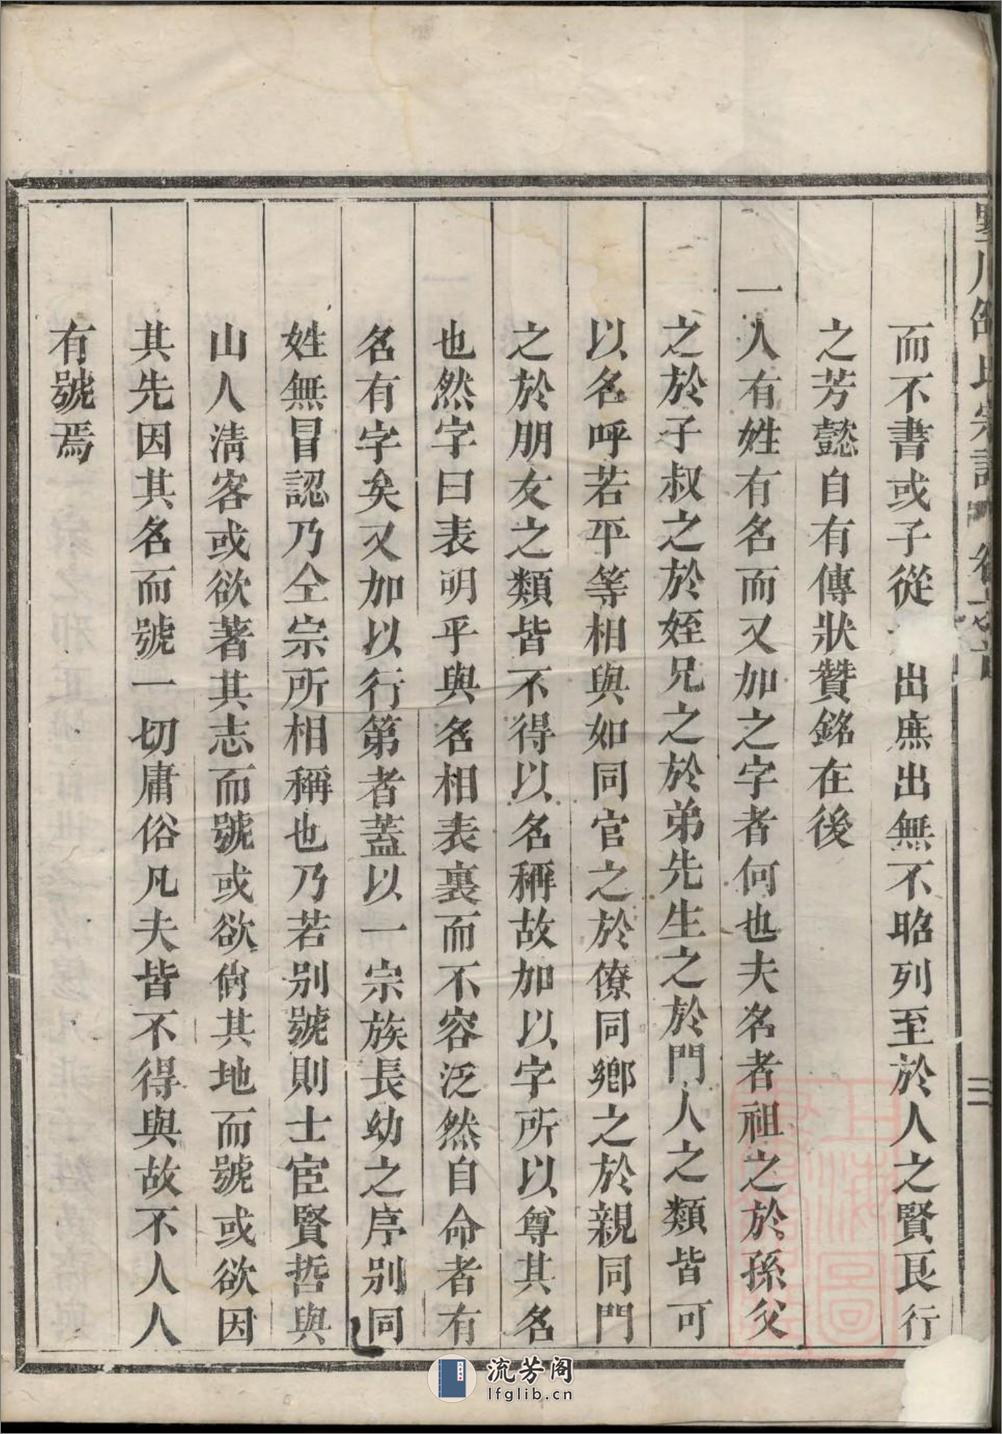 而不書或子從出庶出無不昭列至於人之賢良行
之芳懿自有傳狀贊銘在後
一人有姓有名而又加之字者何也夫名者祖之於孫父
之於子叔之於姪兄之於弟先生之於門人之類皆可
以名呼若平等相與如同官之於僚同鄉之於親同門
之於朋友之類皆不得以名稱故加以字所以尊其名
也然字曰表明乎與名相表裏而不容泛然自命者有
名有字矣又加以行第者蓋以一宗族長幼之序别同
姓無冒認乃仝宗所相稱也乃若别號則士宦賢哲與
山人清客或欲著其志而號或欲尙其地而號或欲因
其先因其名而號一切庸俗凡夫皆不得與故不人人
有號焉
三
流芳阁
lfglib.cn